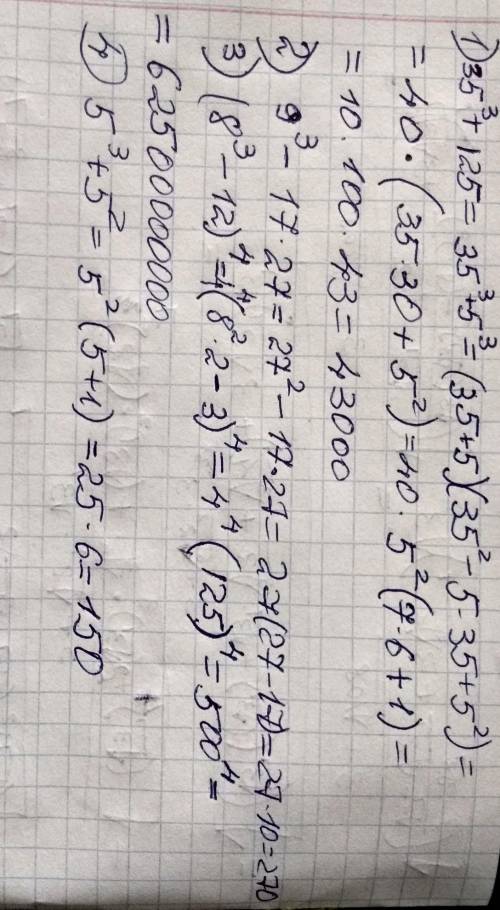 1) 35³ + 125 = 35³ + 5³ = (35+5)(35² - 5·35 + 5²) =
= 40 · (35·30 + 5²) = 40 · 5² (7·6 + 1) =
= 10 · 100 · 43 = 43000
2) 9³ - 17·27 = 27² - 17·27 = 27(27-17) = 27·10 = 270
3) (8³ - 12)⁴ = 4⁴(8²·2 - 3)⁴ = 4⁴ (125)⁴ = 500⁴ =
= 62500000000
4) 5³ + 5² = 5² (5+1) = 25·6 = 150